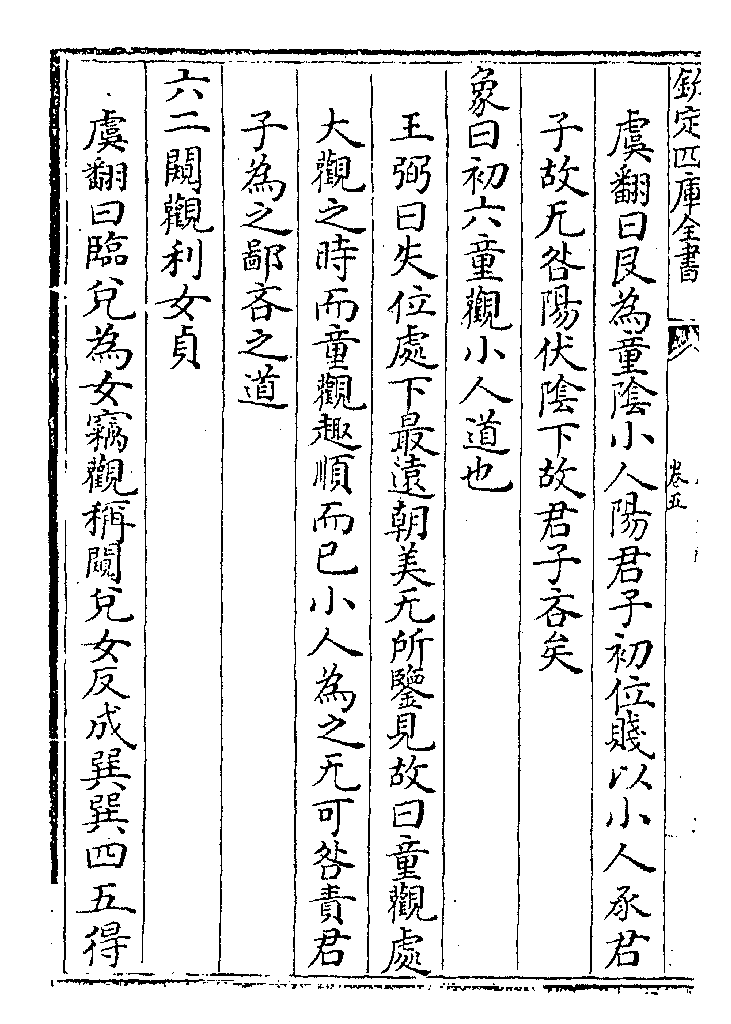 欽定四庫全書
卷五
虞翻曰艮為童陰小人陽君子初位賤以小人承君
子故无咎陽伏陰下故君子吝矣
象曰初六童觀小人道也
王弼曰失位處下最遠朝美无所鑒見故曰童觀處
大觀之時而童觀趣順而已小人為之无可咎責君
子為之鄙吝之道
六二闚觀利女貞
虞翻曰臨兌為女竊觀稱闚兌女反成巽巽四五得